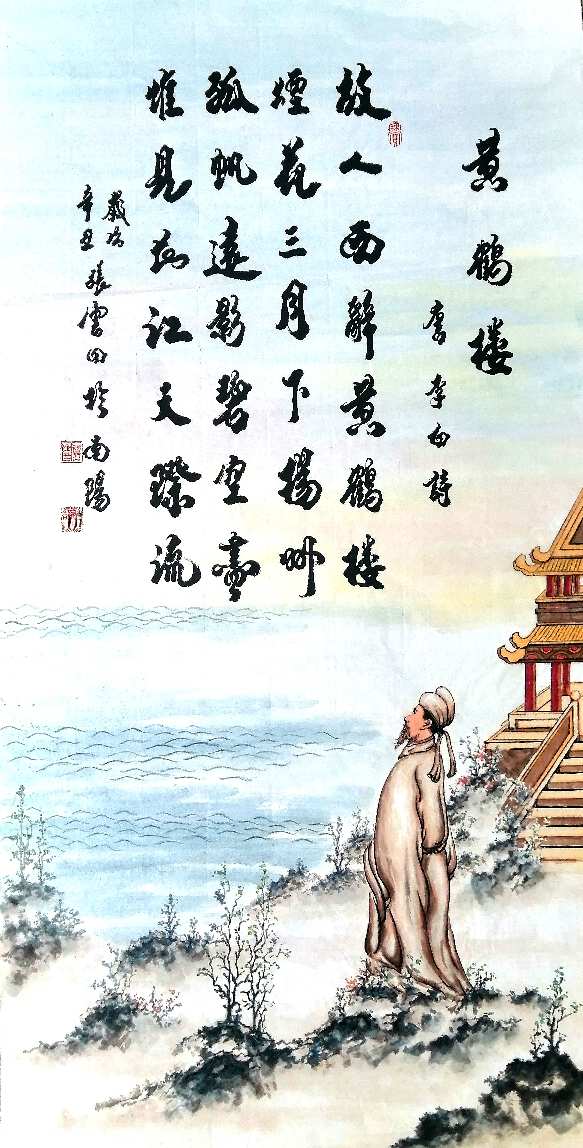 黄鶴楼
唐李白詩
故人西辭黄鶴楼
煙花三月下揚州
孤帆遠影碧空盡
惟見長江天際流
歲次
辛丑
張雲田於南陽